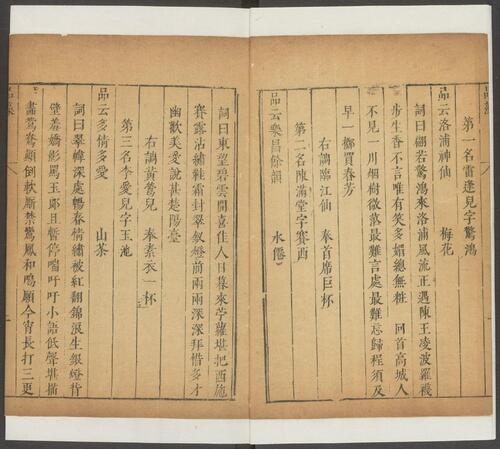 第一名雷逢兒字驚鴻
品云洛浦神仙 梅花
詞曰翩若驚鴻來洛浦風流正遇陳王凌波羅襪
步生香不言唯有笑多媚總無粧 回首高城人
不見一川烟樹微茫最難言處最難忘歸程須及
早一擲買春芳
右調臨江仙 奉首席巨杯
第二名陳滿堂字賽酉
品云樂昌餘韻 水僊
詞曰東望碧雲開喜佳人日暮來苧蘿堪把西施
賽露沾繡鞋霜封翠釵燈前兩兩深深拜惜多才
幽歡美愛說甚楚陽臺
右調黃鶯兒 奉素衣一杯
第三名李愛兒字玉
品云多情多愛 山茶
詞曰翠幃深處暢春情繡被紅翻錦浪生銀燈背
壁羞嬌影罵玉郎且暫停喘吁吁小語低聲堪描
畫鴛鴦顛倒軟厮禁鸞鳳和鳴願今宵長打三更